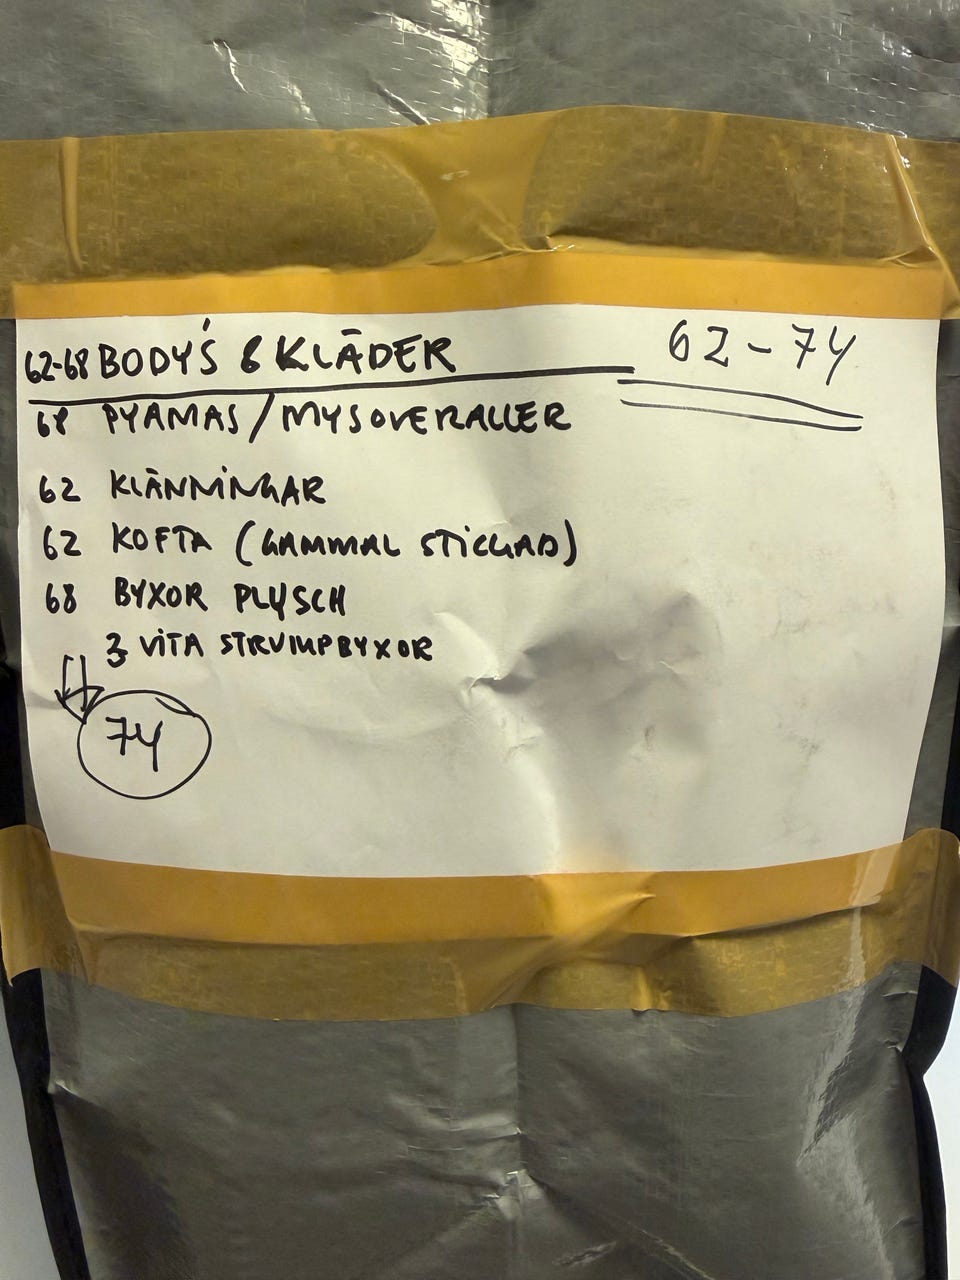 62-68 BODY'S & KLÄDER
62-74
68 PYAMAS/MYSOVERALLER
62 KLÄNNINGAR
62 KOFTA (GAMMAL STICKAD)
68 BYXOR PLYSCH
3 VITA STRUMPBYXOR
74